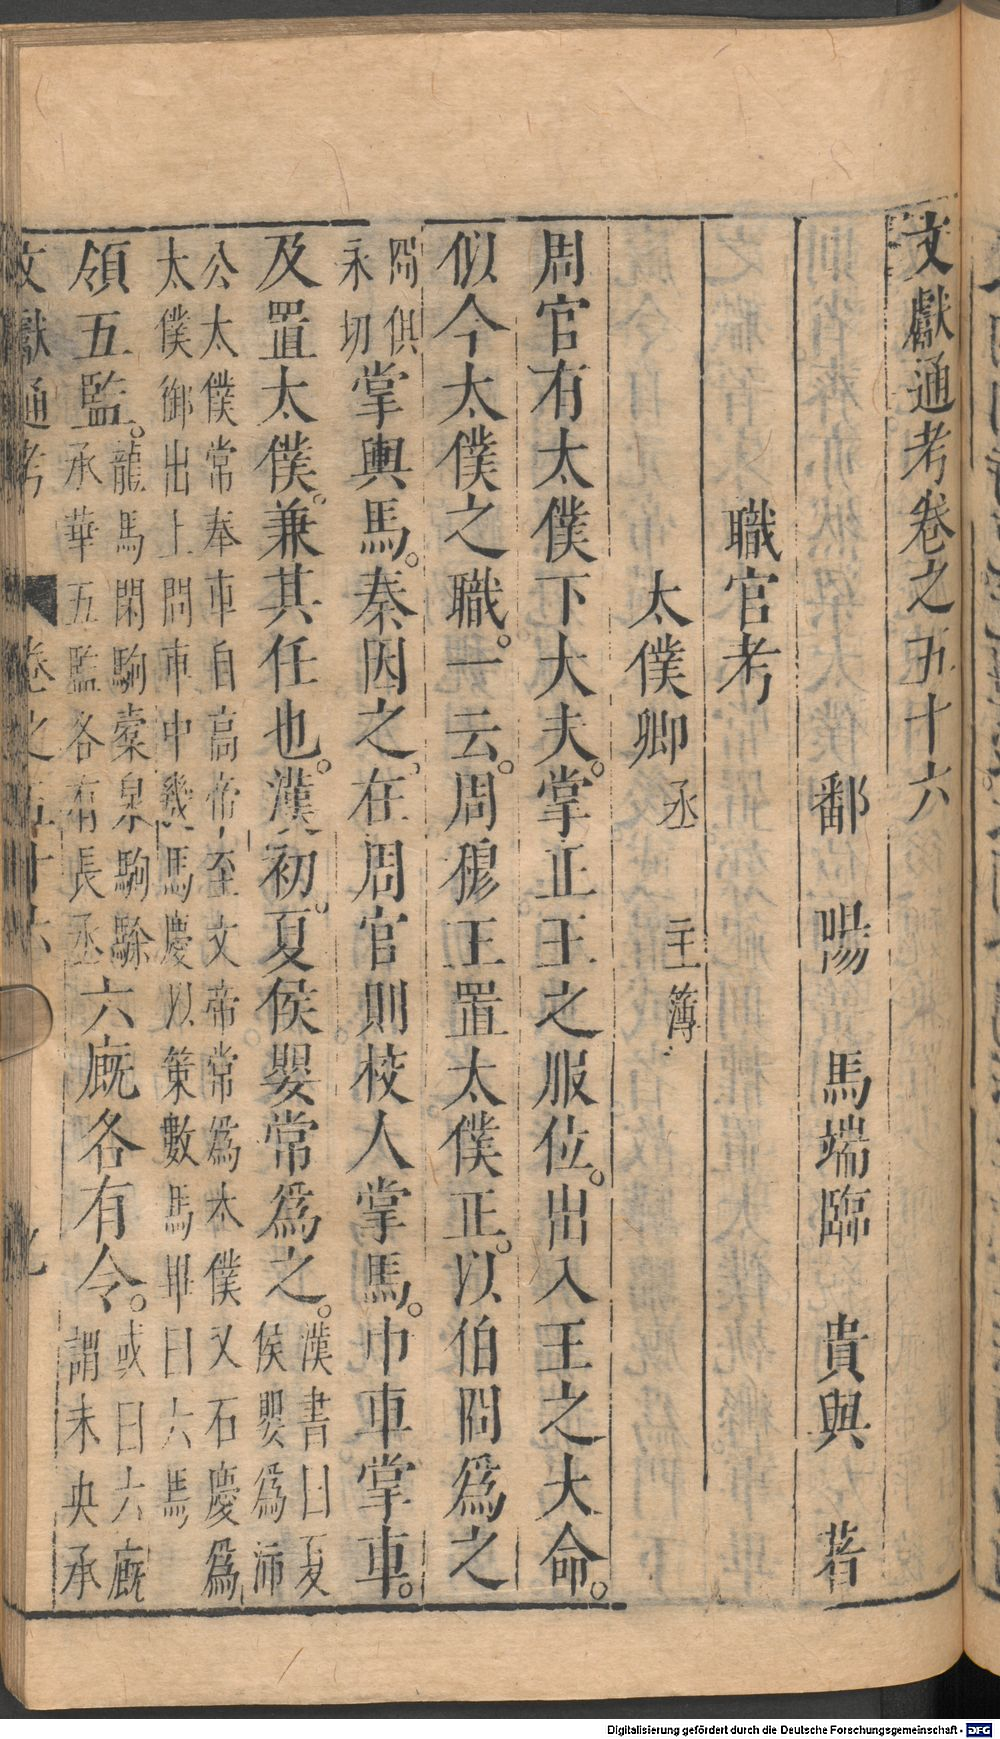 文獻通考卷之五十六
鄱陽馬端臨貴與著
職官考
太僕卿丞主簿
周官有太僕下大夫。掌正王之服位。出入王之大命。
似今太僕之職。一云。周穆王置太僕正。以伯冏爲之
冏俱
永切
掌輿馬。秦因之。在周官則校人掌馬。巾車掌車。
及置太僕。兼其任也。漢初。夏侯嬰常爲之。
漢書曰夏
侯嬰爲沛
公太僕常奉車自高帝至文帝常爲太僕又石慶爲
太僕御出上問車中幾馬慶以策數馬畢曰六馬
領五監。
龍馬閑駒橐泉駒駼
承華五監各有長丞
六廐各有令。
或曰六廐
謂未央承
文獻通考
卷之五十六
Digitalisierung gefördert durch die Deutsche Forschungsgemeinschaft - DFG